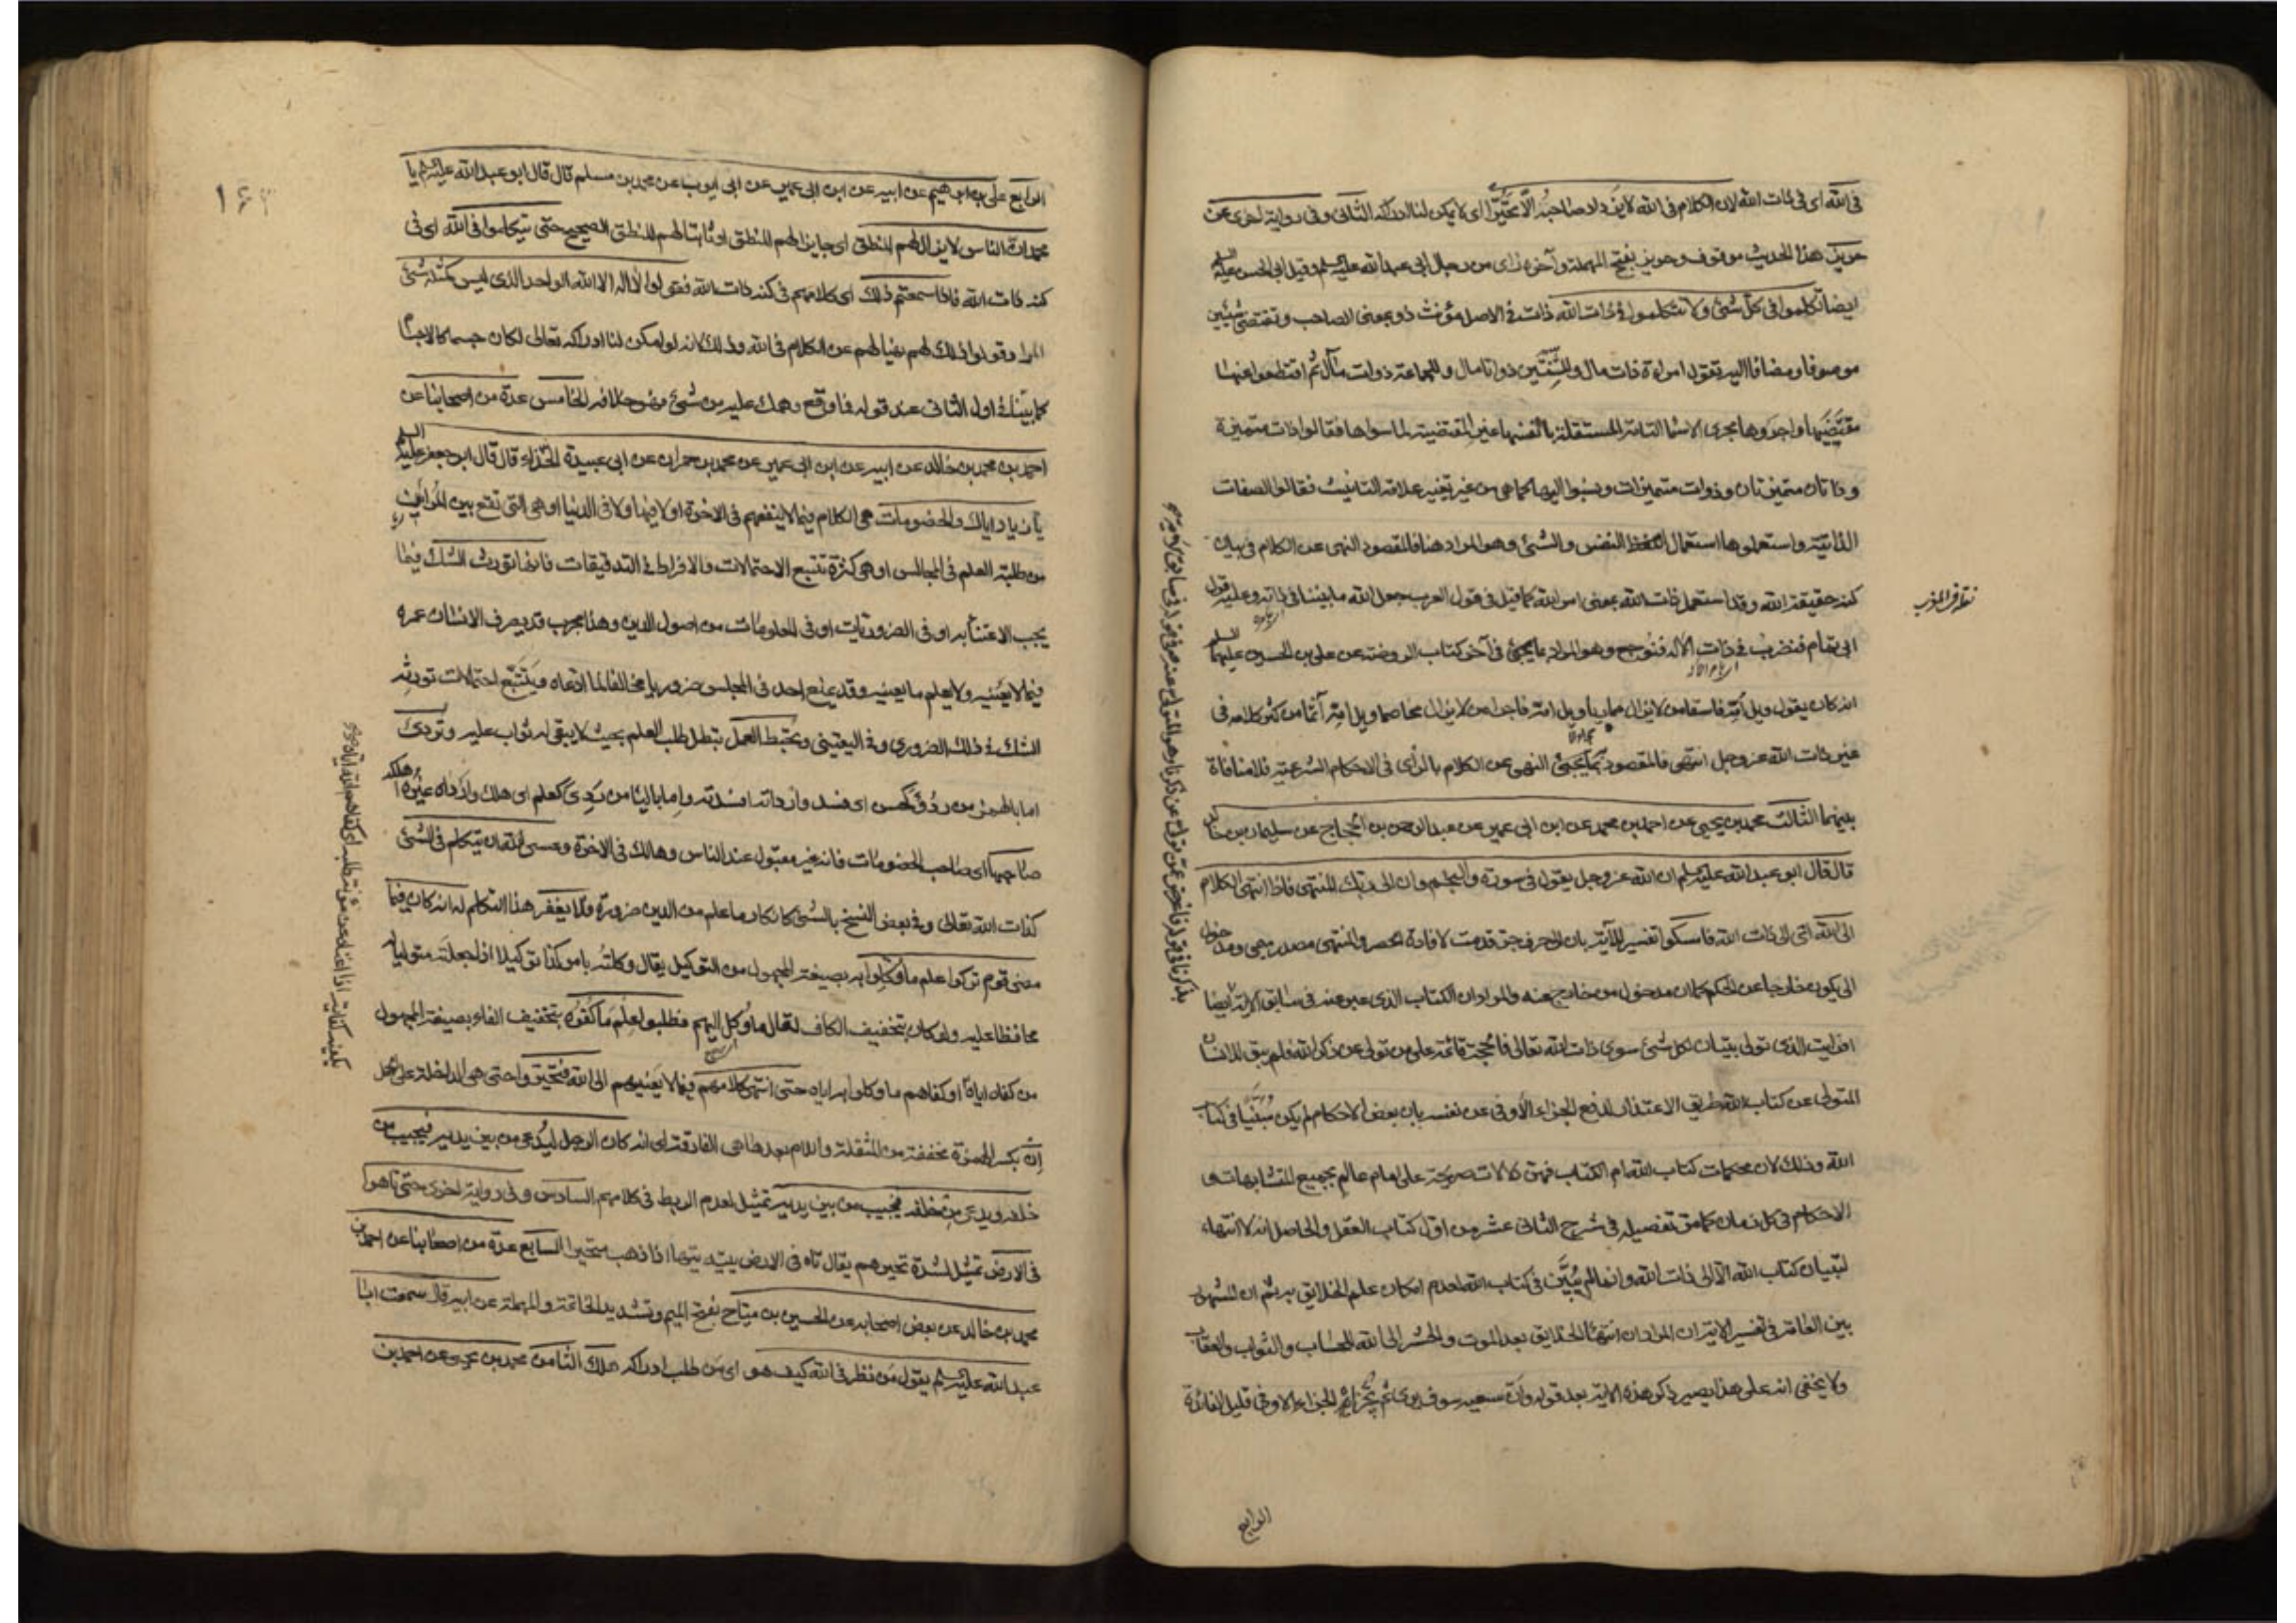 في الله اى في ذات الله لان الكلام في الله لا يزداد صاحبه الا تحيّرا اى لا يمكن لنا ادراكه الثانى وفي رواية اخرى عن
حريز هذا الحديث موقوف وحريز بفتح المهملة وآخره زاى من رجال ابى عبد الله عليه السلم وقيل ابى الحسن عليه السلم
ايضا تكلموا في كل شئ ولا تتكلموا في ذات الله ذات في الاصل مؤنث ذو بمعنى الصاحب وتقتضى شيئين
موصوفا ومضافا اليه تقول امراة ذات مال وللثنتين ذواتا مال وللجماعة ذوات مال ثم اقتطعوا عنها
مقتضيها واجروها مجرى الاسما التامة المستقلة بانفسها غير المقتضية لما سواها فقالوا ذات متميزة
وذاتان متميزتان وذوات متميزات ونسبوا اليها كما هى من غير تغيير علامة التانيث فقالوا الصفات
الذاتية واستعملوها استعمال لفظ النفس والشئ وهو المراد هنا فالمقصود النهى عن الكلام في بيان
كنه حقيقة الله وقد استعمل ذات الله بمعنى امر الله كما قيل في قول العرب جعل الله ما بيننا في ذاته وعليه قول
ابى تمام فنضرب في ذات الاله فنوجع وهو المراد بما يجئ في آخر كتاب الروضة عن على بن الحسين عليهما السلم
انه كان يقول ويل امّه فاسقا من لا يزال مماريا ويل امّه فاجرا من لا يزال مخاصما ويل امّه آثما من كثر كلامه في
غير ذات الله عز وجل انتهى فالمقصود بما يجئ النهى عن الكلام بالراى في الاحكام الشرعية فلا منافاة
بينهما الثالث محمد بن يحيى عن احمد بن محمد عن ابن ابى عمير عن عبد الرحمن بن الحجاج عن سليمان بن خالد
قال قال ابو عبد الله عليه السلم ان الله عز وجل يقول في سورة والنجم وان الى ربك المنتهى فاذا انتهى الكلام
الى الله اى الى ذات الله فامسكوا تفسير للآية بان الى حرف جر قدمت لافادة الحصر والمنتهى مصدر ميمى ومدخول
الى يكون خارجا عن الحكم كما ان مدخول من خارج عنه والمراد ان الكتاب الذى عبر عنه في سابق الآية ايضا
افرايت الذى تولى بتبيان لكل شئ سوى ذات الله تعالى فالحجة قائمة على من تولى عن ذكر الله فلم يبق للانسان
المتولى عن كتاب الله طريق الاعتذار لدفع الجزاء الاوفى عن نفسه بان بعض الاحكام لم يكن مبيّنا في كتاب
الله وذلك لان محكمات كتاب الله ام الكتاب فهى دلالات صريحة على امام عالم بجميع المتشابهات و
الاحكام في كل زمان كما مر تفصيله في شرح الثانى عشر من اول كتاب العقل والحاصل انه لا انتهاء
لتبيان كتاب الله الا الى ذات الله وانما لم يبيّن في كتاب الله لعدم امكان علم الخلايق به ثم ان المشهور
بين العامة في تفسير الاية ان المراد ان انتهاء الخلايق بعد الموت والحشر الى الله للحساب والثواب والعقاب
ولا يخفى انه على هذا يصير ذكر هذه الاية بعد قوله وان سعيه سوف يرى ثم يجزاه الجزاء الاوفى قليل الفائدة
الرابع
الرابع على بن ابراهيم عن ابيه عن ابن ابى عمير عن ابى ايوب عن محمد بن مسلم قال قال ابو عبد الله عليه السلم يا
محمد ان الناس لا يزال لهم المنطق اى جايزا لهم المنطق او ثابتا لهم المنطق الصحيح حتى يتكلموا في الله اى في
كنه ذات الله فاذا سمعتم ذلك اى كلامهم في كنه ذات الله فقولوا لا اله الا الله الواحد الذى ليس كمثله شئ
المراد قولوا ذلك لهم نهيا لهم عن الكلام في الله وذلك لانه لو امكن لنا ادراكه تعالى لكان جسما كالاجسام
كما بيّنا في اول الثانى عند قوله فما وقع وهمك عليه من شئ فهو خلافه الخامس عدة من اصحابنا عن
احمد بن محمد بن خالد عن ابيه عن ابن ابى عمير عن محمد بن حمران عن ابى عبيدة الحذاء قال قال ابو جعفر عليه السلم
يا زياد اياك والخصومات هى الكلام فيما لا ينفعهم في الاخرة او لا فيها ولا في الدنيا او هى التى تقع بين المرائين
من طلبة العلم في المجالس او هى كثرة تتبع الاحتمالات والافراط في التدقيقات فانها تورث الشك فيما
يجب الاعتناء به او في الضروريات او في المعلومات من اصول الدين وهذا مجرب قد يصرف الانسان عمره
فيما لا يعنيه ولا يعلم ما يعنيه وقد ينازع احد في المجلس ضروريا مخالفا لما ادعاه ويتتبع احتمالات تورثه
الشك في ذلك الضرورى وفي اليقينى وتحبط العمل تبطل طلب العلم بحيث لا يبقى له ثواب عليه وتردى
اما بالهمز من ردؤ كحسن اى فسد واردأته افسدته واما باليا من ردى كعلم اى هلك وارداه غيره اهلكه
صاحبها اى صاحب الخصومات فانه غير مقبول عند الناس وهالك في الاخرة وعسى الله ان يتكلم في الشئ
كذات الله تعالى وفي بعض النسخ بالشئ كانكار ما علم من الدين ضرورة فلا يغفر هذا التكلم له انه كان فيما
مضى قوم تركوا علم ما وكلوا به بصيغة المجهول من التوكيل يقال وكلته بامر كذا توكيلا اذا جعلته متوليا له
محافظا عليه ولو كان بتخفيف الكاف لقال ما وكل اليهم فطلبوا علم ما كفوه بتخفيف الفاء بصيغة المجهول
من كفاه اياه او كفاهم ما وكلوا به اياه حتى انتهى كلامهم فيما لا يعنيهم الى الله فتحيروا حتى هى الداخلة على الجمل
ان بكسر الهمزة مخففة من المثقلة واللام بعدها هى الفارقة اى انه كان الرجل ليدعى من بين يديه فيجيب من
خلفه ويدعى من خلفه فيجيب من بين يديه تمثيل لعدم الربط في كلامهم السادس وفي رواية اخرى حتى تاهوا
في الارض تمثيل لشدة تحيرهم يقال تاه في الارض يتيه تيها اذا ذهب متحيرا السابع عدة من اصحابنا عن احمد بن
محمد بن خالد عن بعض اصحابه عن الحسين بن مياح بفتح الميم وتشديد الخاتمة والمهملة عن ابيه قال سمعت ابا
عبد الله عليه السلم يقول من نظر في الله كيف هو اى من طلب ادراكه هلك الثامن محمد بن يحيى عن احمد بن